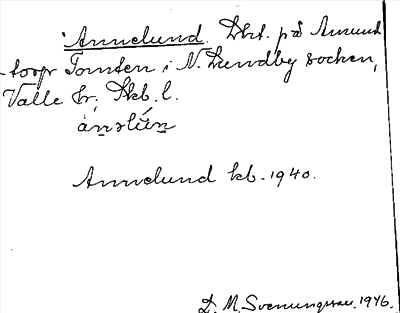 Annelund. Lht. på Amund
-torp Tomten i N. Lundby socken,
Valle hr; Skb. l.
ànəlún
Annelund kb. 1940.
D. M. Svenungsson. 1946.